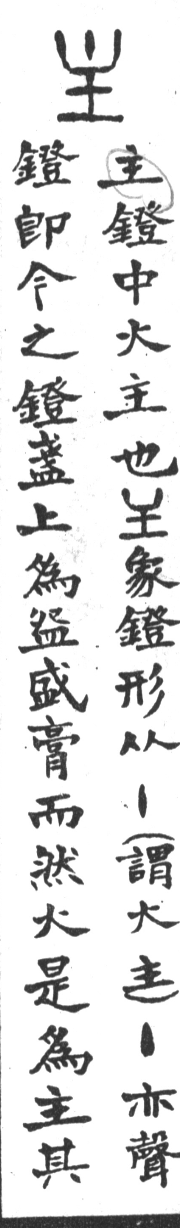 主鐙中火主也象鐙形从丨(謂火主)丨亦聲
鐙即今之鐙盞上為盌盛膏而然火是為主其